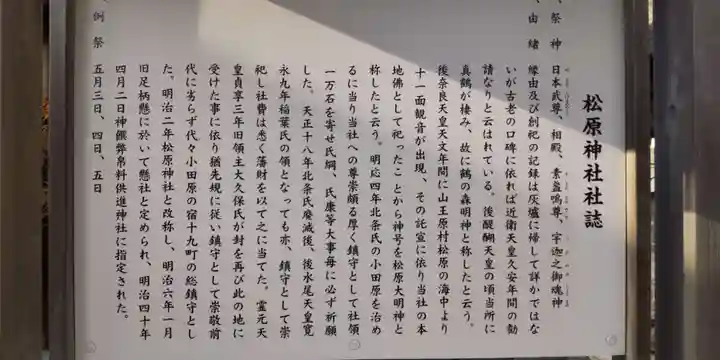 松原神社社誌
一、祭神　日本武尊、相殿、素盞嗚尊、宇迦之御魂神
一、由緒　縁由及び創祀の記録は灰燼に帰して詳かではな
いが古老の口碑に依れば近衛天皇久安年間の勧
請なりと云はれている。後醍醐天皇の頃当所に
真鶴が棲み、故に鶴の森明神と称したと云う。
後奈良天皇天文年間に山王原村松原の海中より
十一面観音が出現、その託宣に依り当社の本
地佛として祀ったことから神号を松原大明神と
称したと云う。明応四年北条氏の小田原を治め
るに当り当社への尊崇頗る厚く鎮守として社領
一万石を寄せ氏綱、氏康等大事毎に必ず祈願
した。天正十八年北条氏廃滅後、後水尾天皇寛
永九年稲葉氏の領となっても亦、鎮守として崇
祀し社費は悉く藩財を以て之に当てた。霊元天
皇貞享三年旧領主大久保氏が封を再び此の地に
受けた事に依り猶先規に従い鎮守として崇敬前
代に劣らず代々小田原の宿十九町の総鎮守とし
た。明治二年松原神社と改称し、明治六年一月
旧足柄懸に於いて懸社と定められ、明治四十年
四月二日神饌幣帛料供進神社に指定された。
、例祭　五月三日、四日、五日